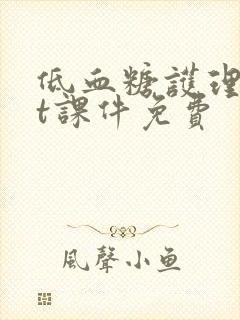 低血糖護理
t課件免費
風聲小鱼